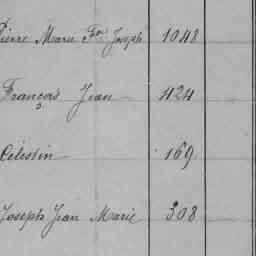 Pierre Marie Fois Joseph 1048
François Jean 424
Célestin 169
Joseph Jean Marie 308